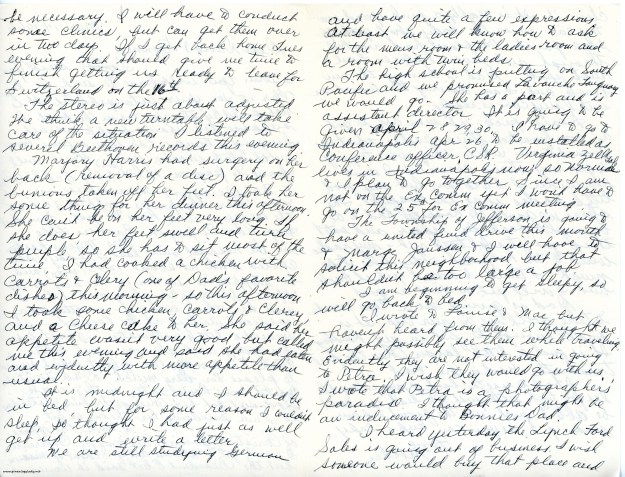 be necessary. I will have to conduct
some clinics, but can get them over
in two days. If I get back home Tues
evening that should give me time to
finish getting us ready to leave for
Switzerland on the 16th
The stereo is just about adjusted
We think a new turntable will take
care of the situation. I listened to
several Beethoven records this evening.
Marjory Harris had surgery on her
back (removal of a disc) and the
bunions taken off her feet. I took her
some thing for her dinner this afternoon.
She can't be on her feet very long. If
she does her feet swell and turn
purple so she has to sit most of the
time. I had cooked a chicken with
Carrots & Celery (one of Dads favorite
dishes) this morning - so this afternoon
I took some chicken, carrots & celery
and a cheese cake to her. She said her
appetite wasn't very good but called
me this evening and said she had eaten
and evidently with more appetite than
usual.
It is midnight and I should be
in bed, but for some reason I couldn't
sleep, so thought I had just as well
get up and write a letter.
We are still studying German
and have quite a few expressions
At least we will know how to ask
for the mens room & the ladies room and
a room with twin beds.
The high school is putting on South
Pacific and we promised
we would go. She has a part and is
assistant director. It is going to be
given April 28, 29, 30. I have to go to
Indianapolis Apr 26, to be installed as
Conference officer, C.S.R. Virginia
lives in Indianapolis now, so
& I plan to go together. Since I am
not on the Ex Comm yet I wont have to
go on the 25th to Ex Comm meeting
The Township of Jefferson is going to
have a united fund drive this month
& Marg Janssen & I will have to
solicit this neighborhood but that
shouldn't be too large a job.
I am beginning to get sleepy, so
will go back to bed.
I wrote to & Mac but
haven't heard from them. I thought we
might possibly see them while traveling
Evidently they are not interested in going
to Petra. I wish they would go with us.
I wrote that Petra is a photographers'
paradise. I thought that might be
an inducement to Bonnies Dad.
I heard yesterday the Lynch Ford
Sales is going out of business I wish
someone would buy that place and